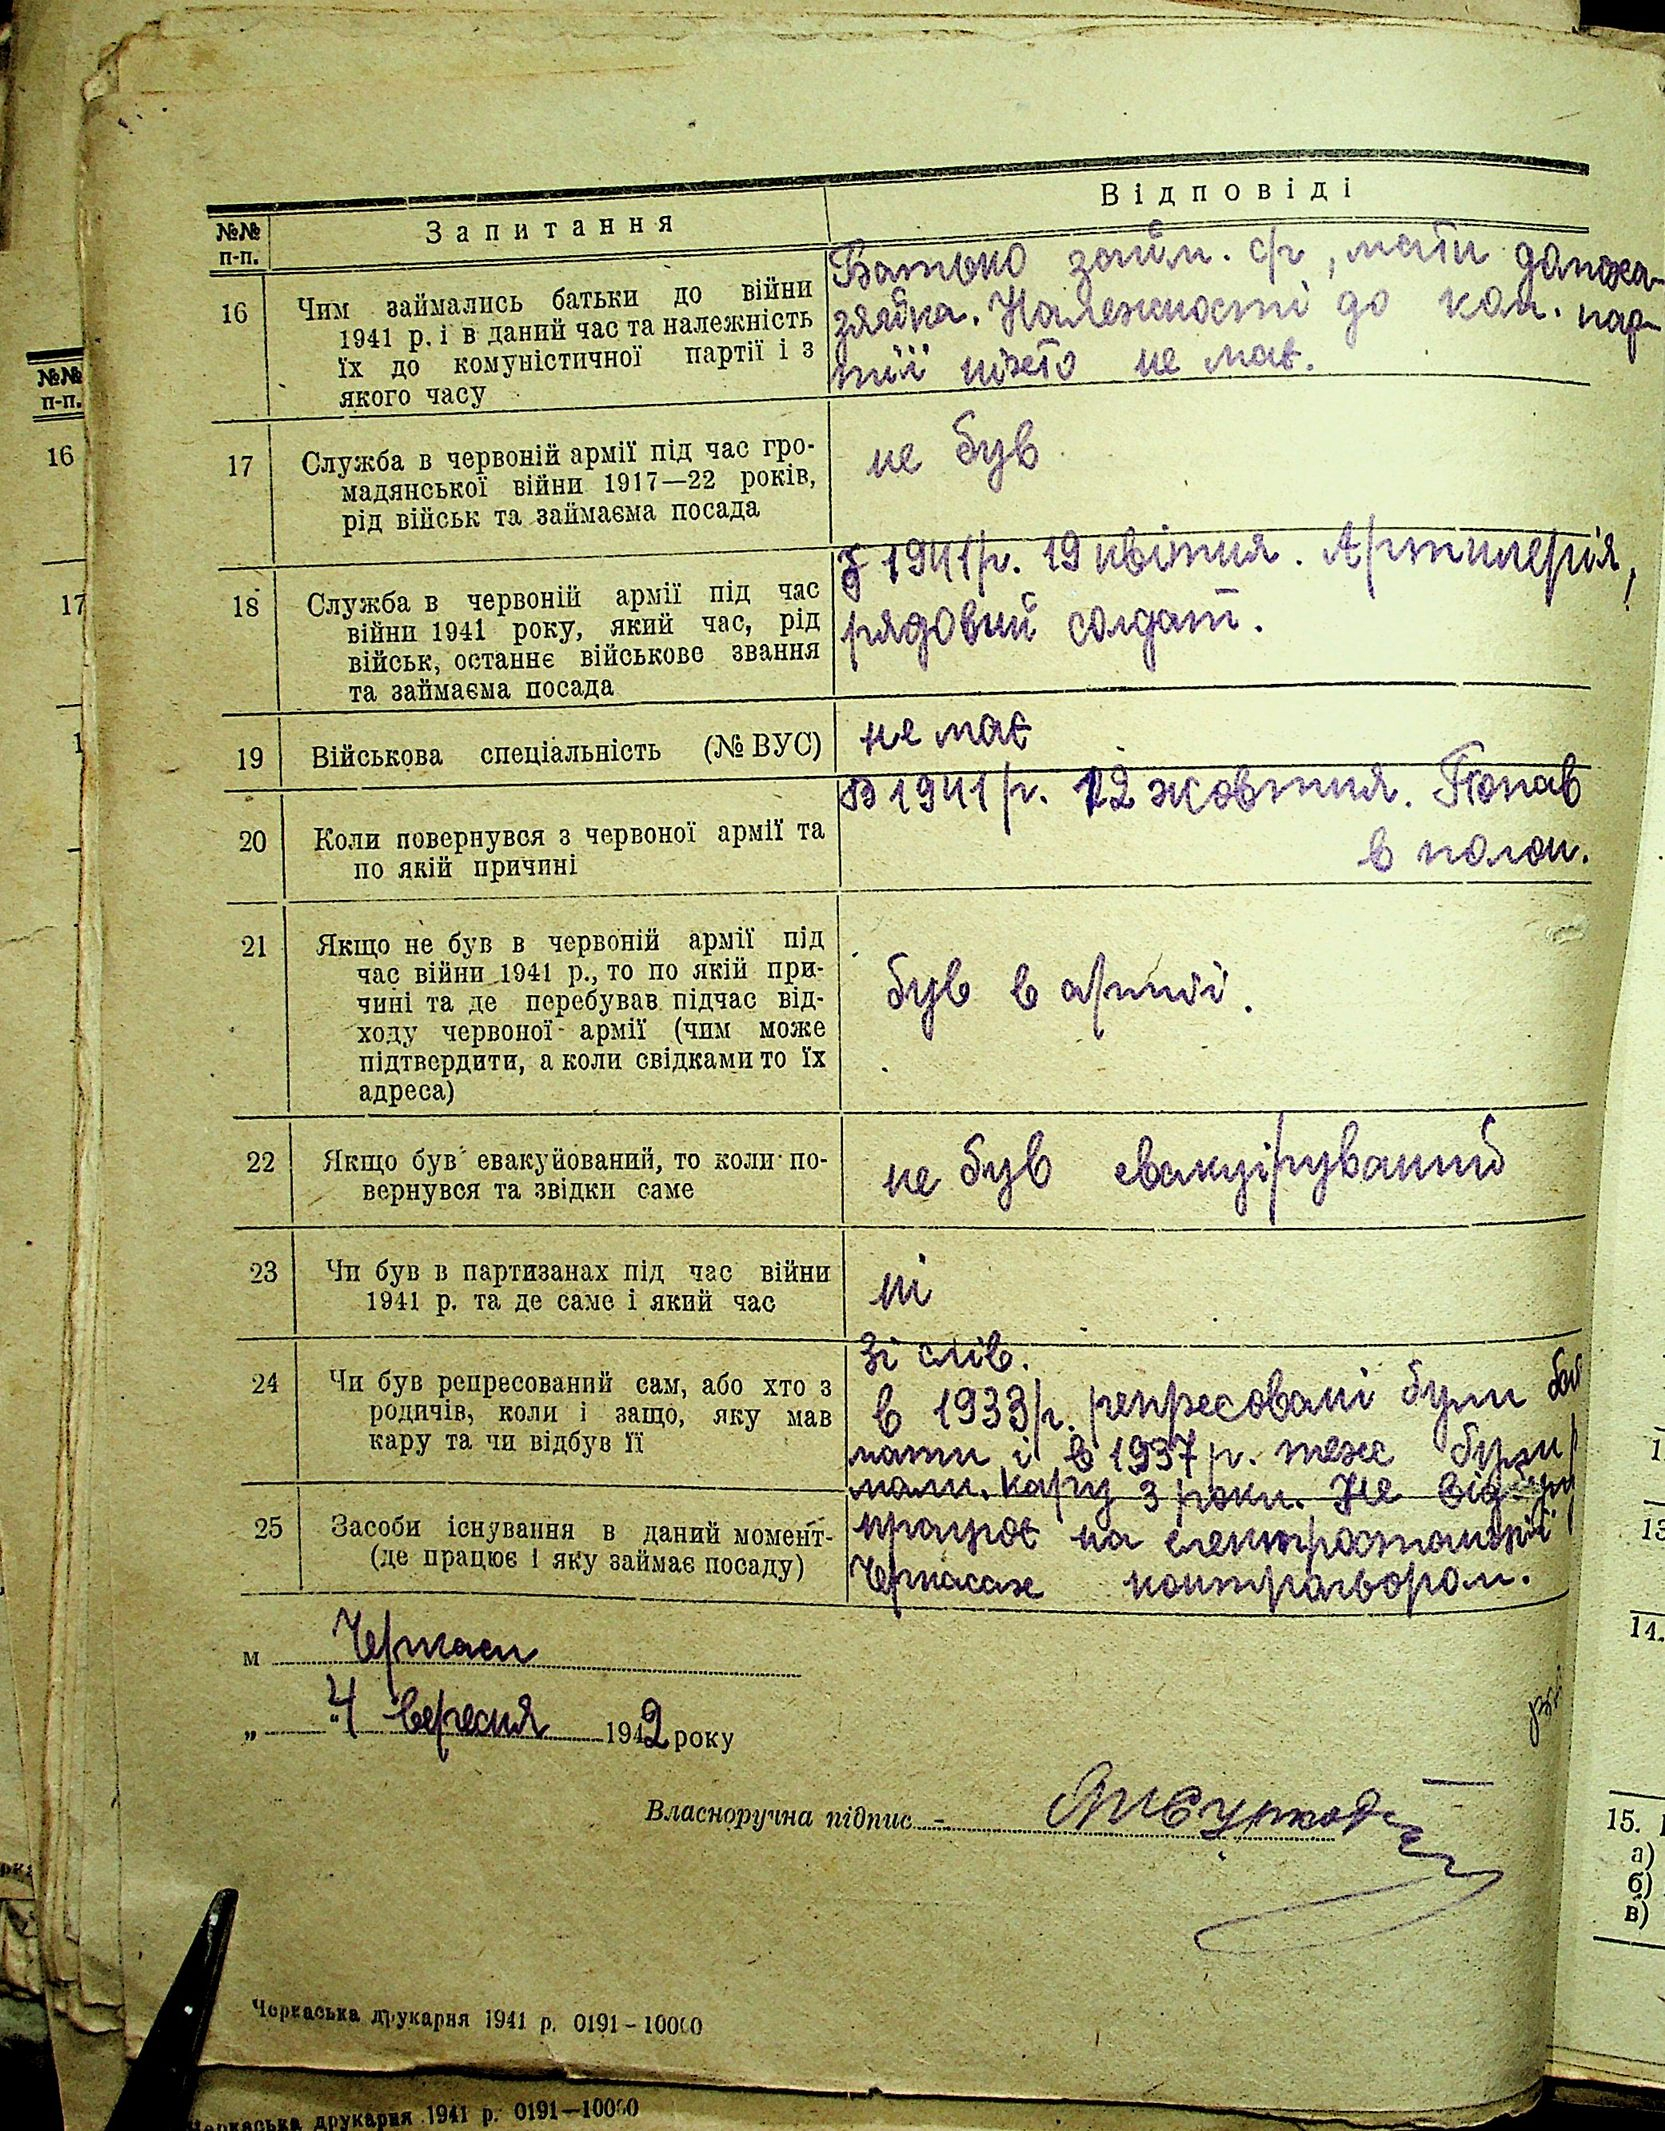 №№ п-п. Запитання Відповіді
16 Чим займались батьки до війни
1941 р. і в даний час та належність
їх до комуністичної партії і з
якого часу
Батько займ. с/г, мати домоха-
зяйка. Належності до ком. пар-
тії ніхто не має.
17 Служба в червоній армії під час гро-
мадянської війни 1917—22 років,
рід військ та займаєма посада
не був
18 Служба в червоній армії під час
війни 1941 року, який час, рід
військ, останнє військове звання
та займаєма посада
З 1941 р. 19 квітня. Артилерія,
рядовий солдат.
19 Військова спеціальність (№ ВУС)
не має
20 Коли повернувся з червоної армії та
по якій причині
В 1941 р. 12 жовтня. Попав
в полон.
21 Якщо не був в червоній армії під
час війни 1941 р., то по якій при-
чині та де перебував підчас від-
ходу червоної армії (чим може
підтвердити, а коли свідками то їх
адреса)
був в армії.
22 Якщо був евакуйований, то коли по-
вернувся та звідки саме
не був евакуіруваний
23 Чи був в партизанах під час війни
1941 р. та де саме і який час
ні
24 Чи був репресований сам, або хто з
родичів, коли і защо, яку мав
кару та чи відбув її
Зі слів.
в 1933 р. репресовані були
мати і в 1937 р. теж були
мали кару 3 роки. Не
25 Засоби існування в даний момент-
(де працює і яку займає посаду)
працює на електростанції
Черкасах контрольором.
м Черкаси
„ 4 " вересня 1942 року
Власноручна підпис -
Черкаська друкарня 1941 р. 0191-10000
Черкаська друкарня 1941 р. 0191—10000
№№
п-п.
16
17
1
14.
15.
а)
б)
в)